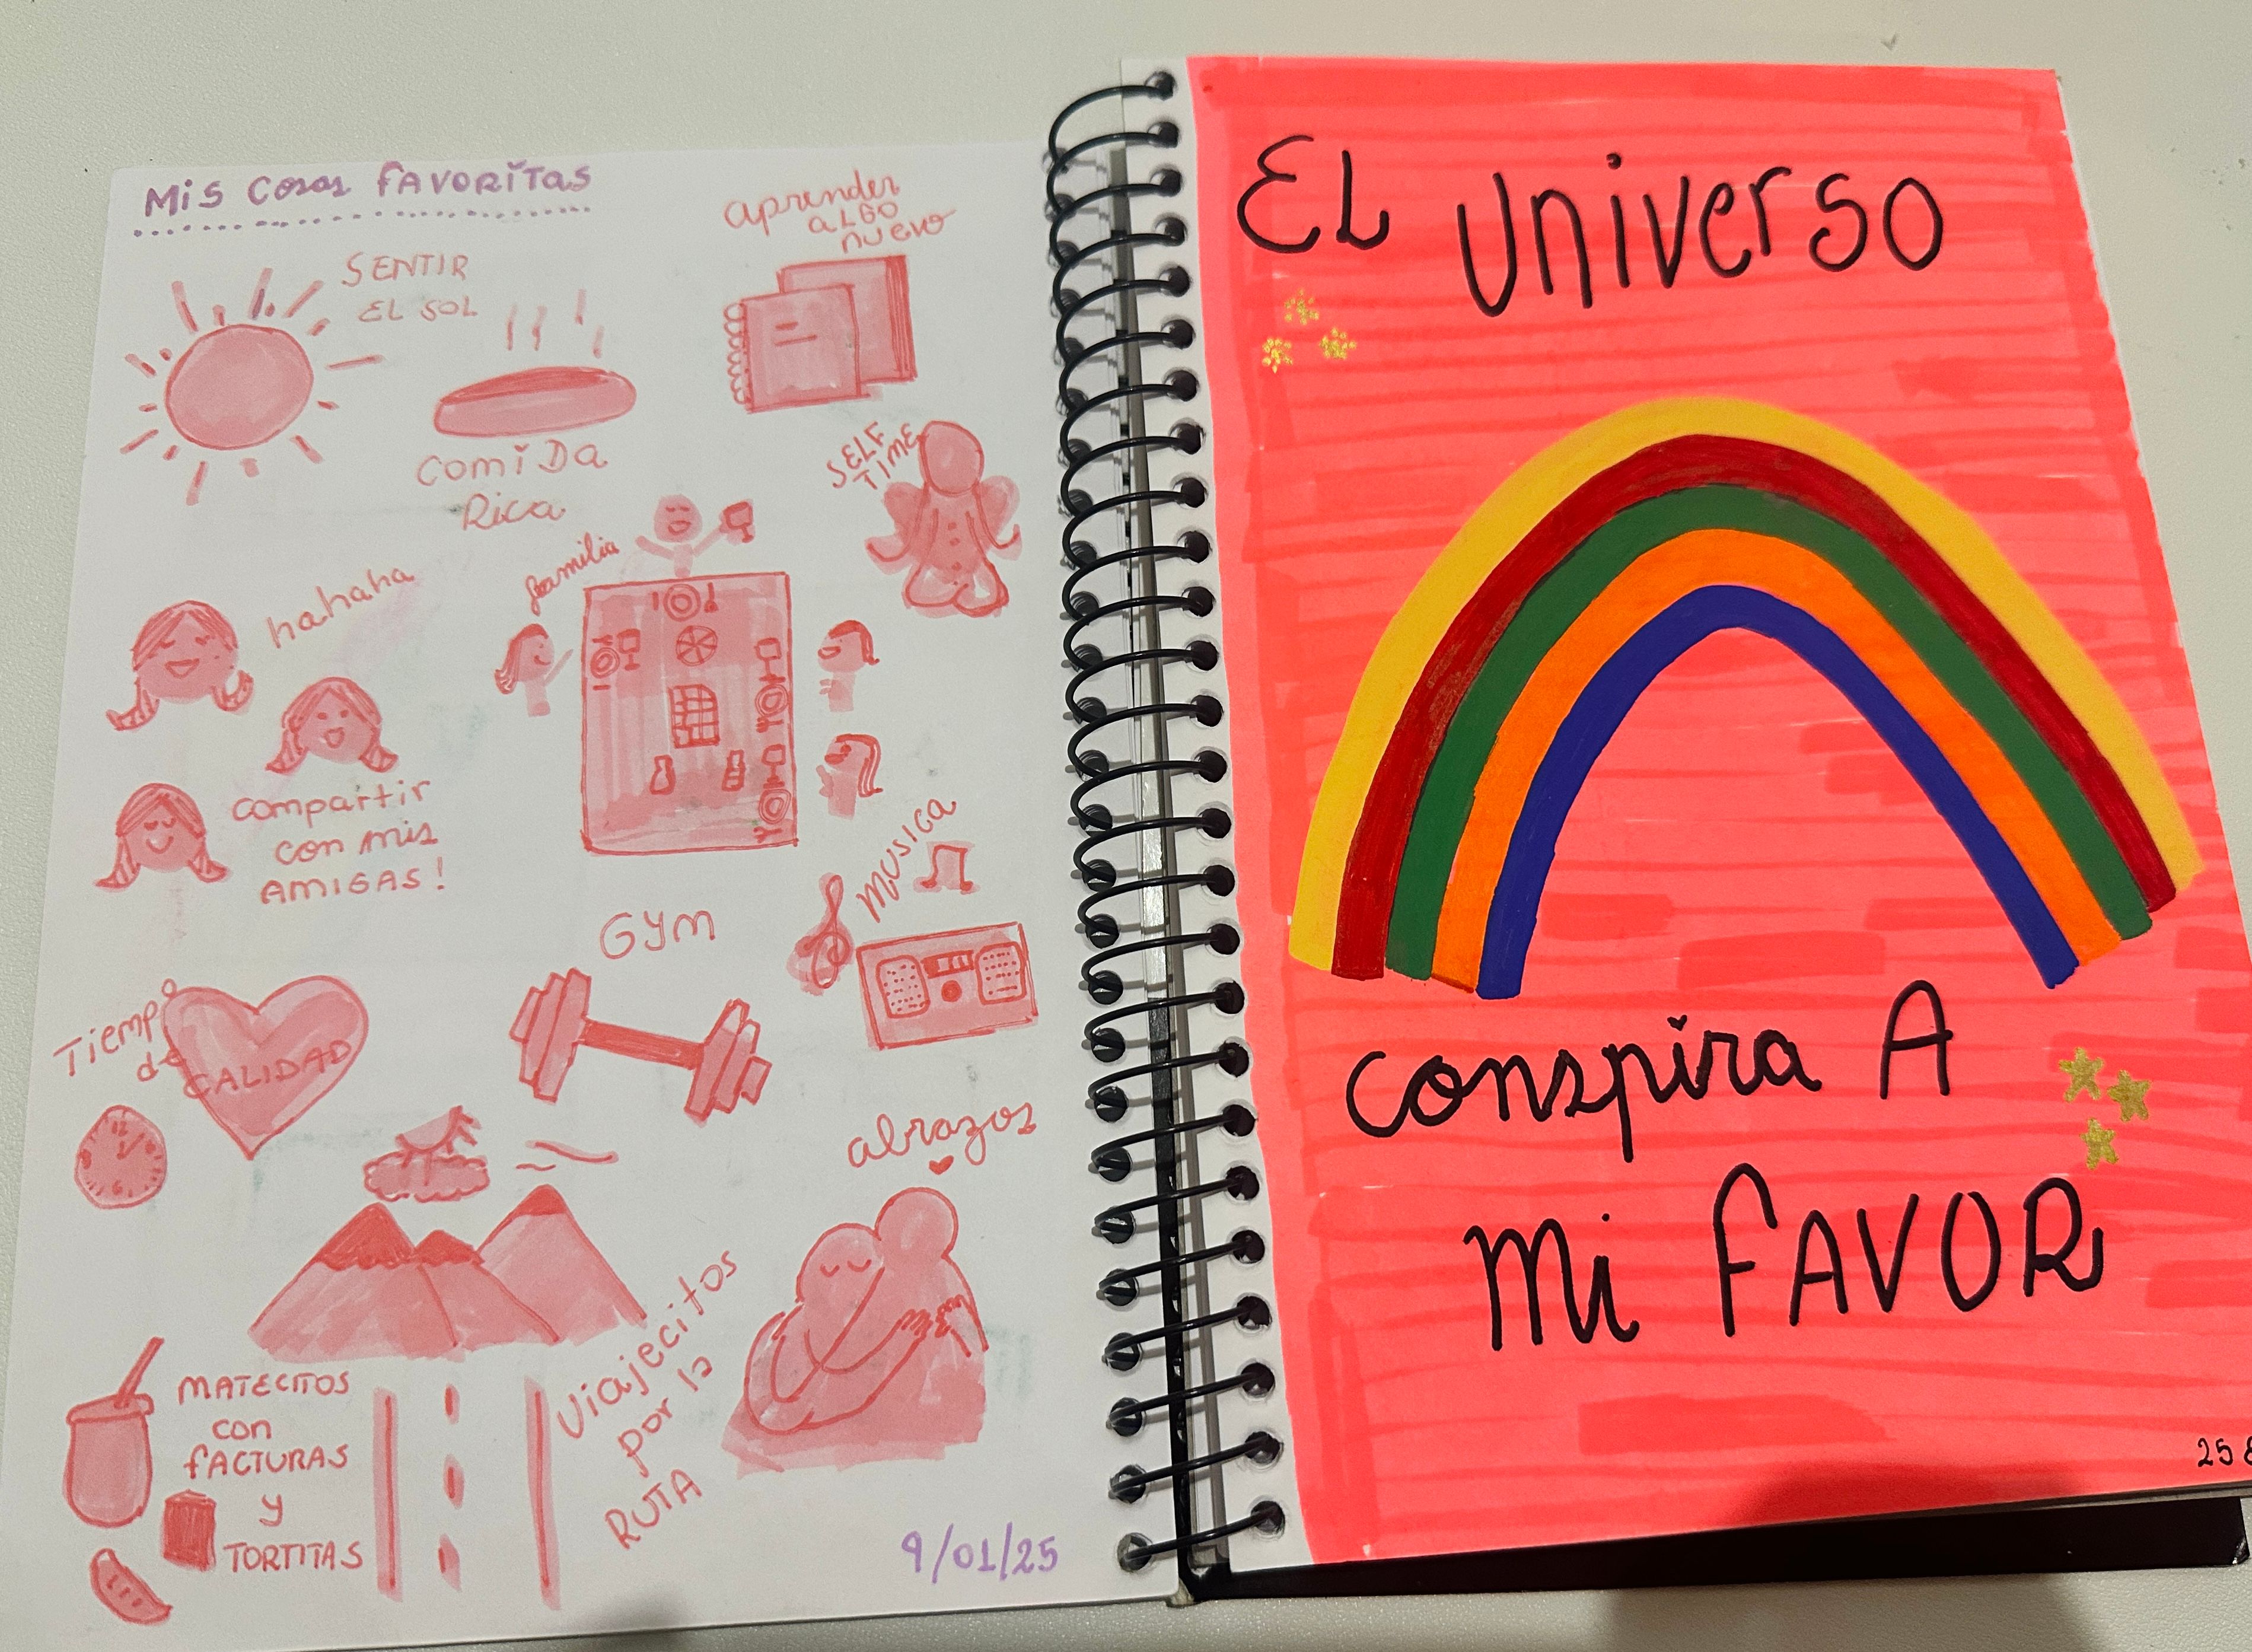 Mis Cosas FAVORITAS
SENTIR
EL SOL
aprender
ALGO
nuevo
COMIDA
Rica
SELF
TIME
familia
hahaha
compartir
con mis
AMIGAS!
MUSICA
GYM
Tiempo
de
CALIDAD
abrazos
MATECITOS
con
FACTURAS
y
TORTITAS
Viajecitos
por la
RUTA
9/01/25
EL Universo
conspira A
Mi FAVOR
25